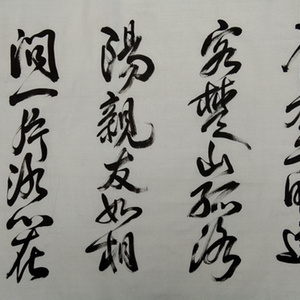 客楚山孤洛
陽親友如相
問一片冰心在